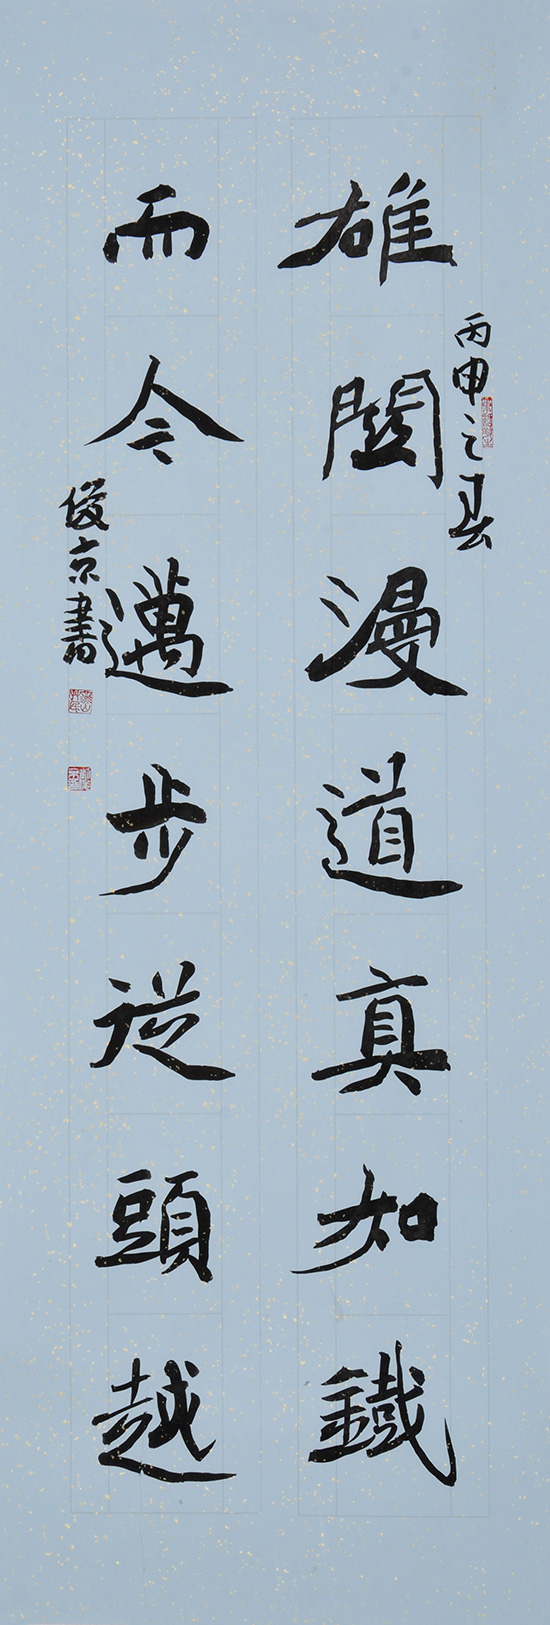 丙申之春
雄關漫道真如鐵
而今邁步從頭越
俊京書